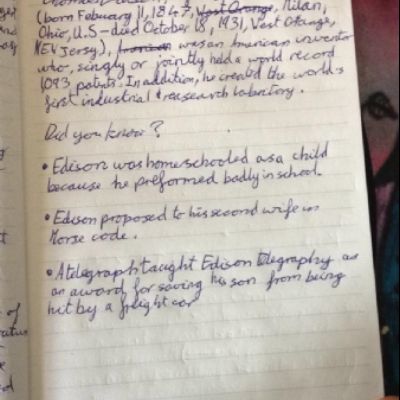 (born Febuary 11, 1847, West Orange, Milan,
Ohio, U.S - died October 18, 1931, West Orange,
NEW Jersey), American was an American inventor
who, singly or jointly held a world record
1093 patents. In addition, he created the world's
first industrial research labortory.
Did you know?
• Edison was homeschooled as a child
because he preformed badly in school.
• Edison proposed to his second wife in
Morse code.
• A telegraph taught Edison telegraphy as
an award for saving his son from being
hit by a freight car